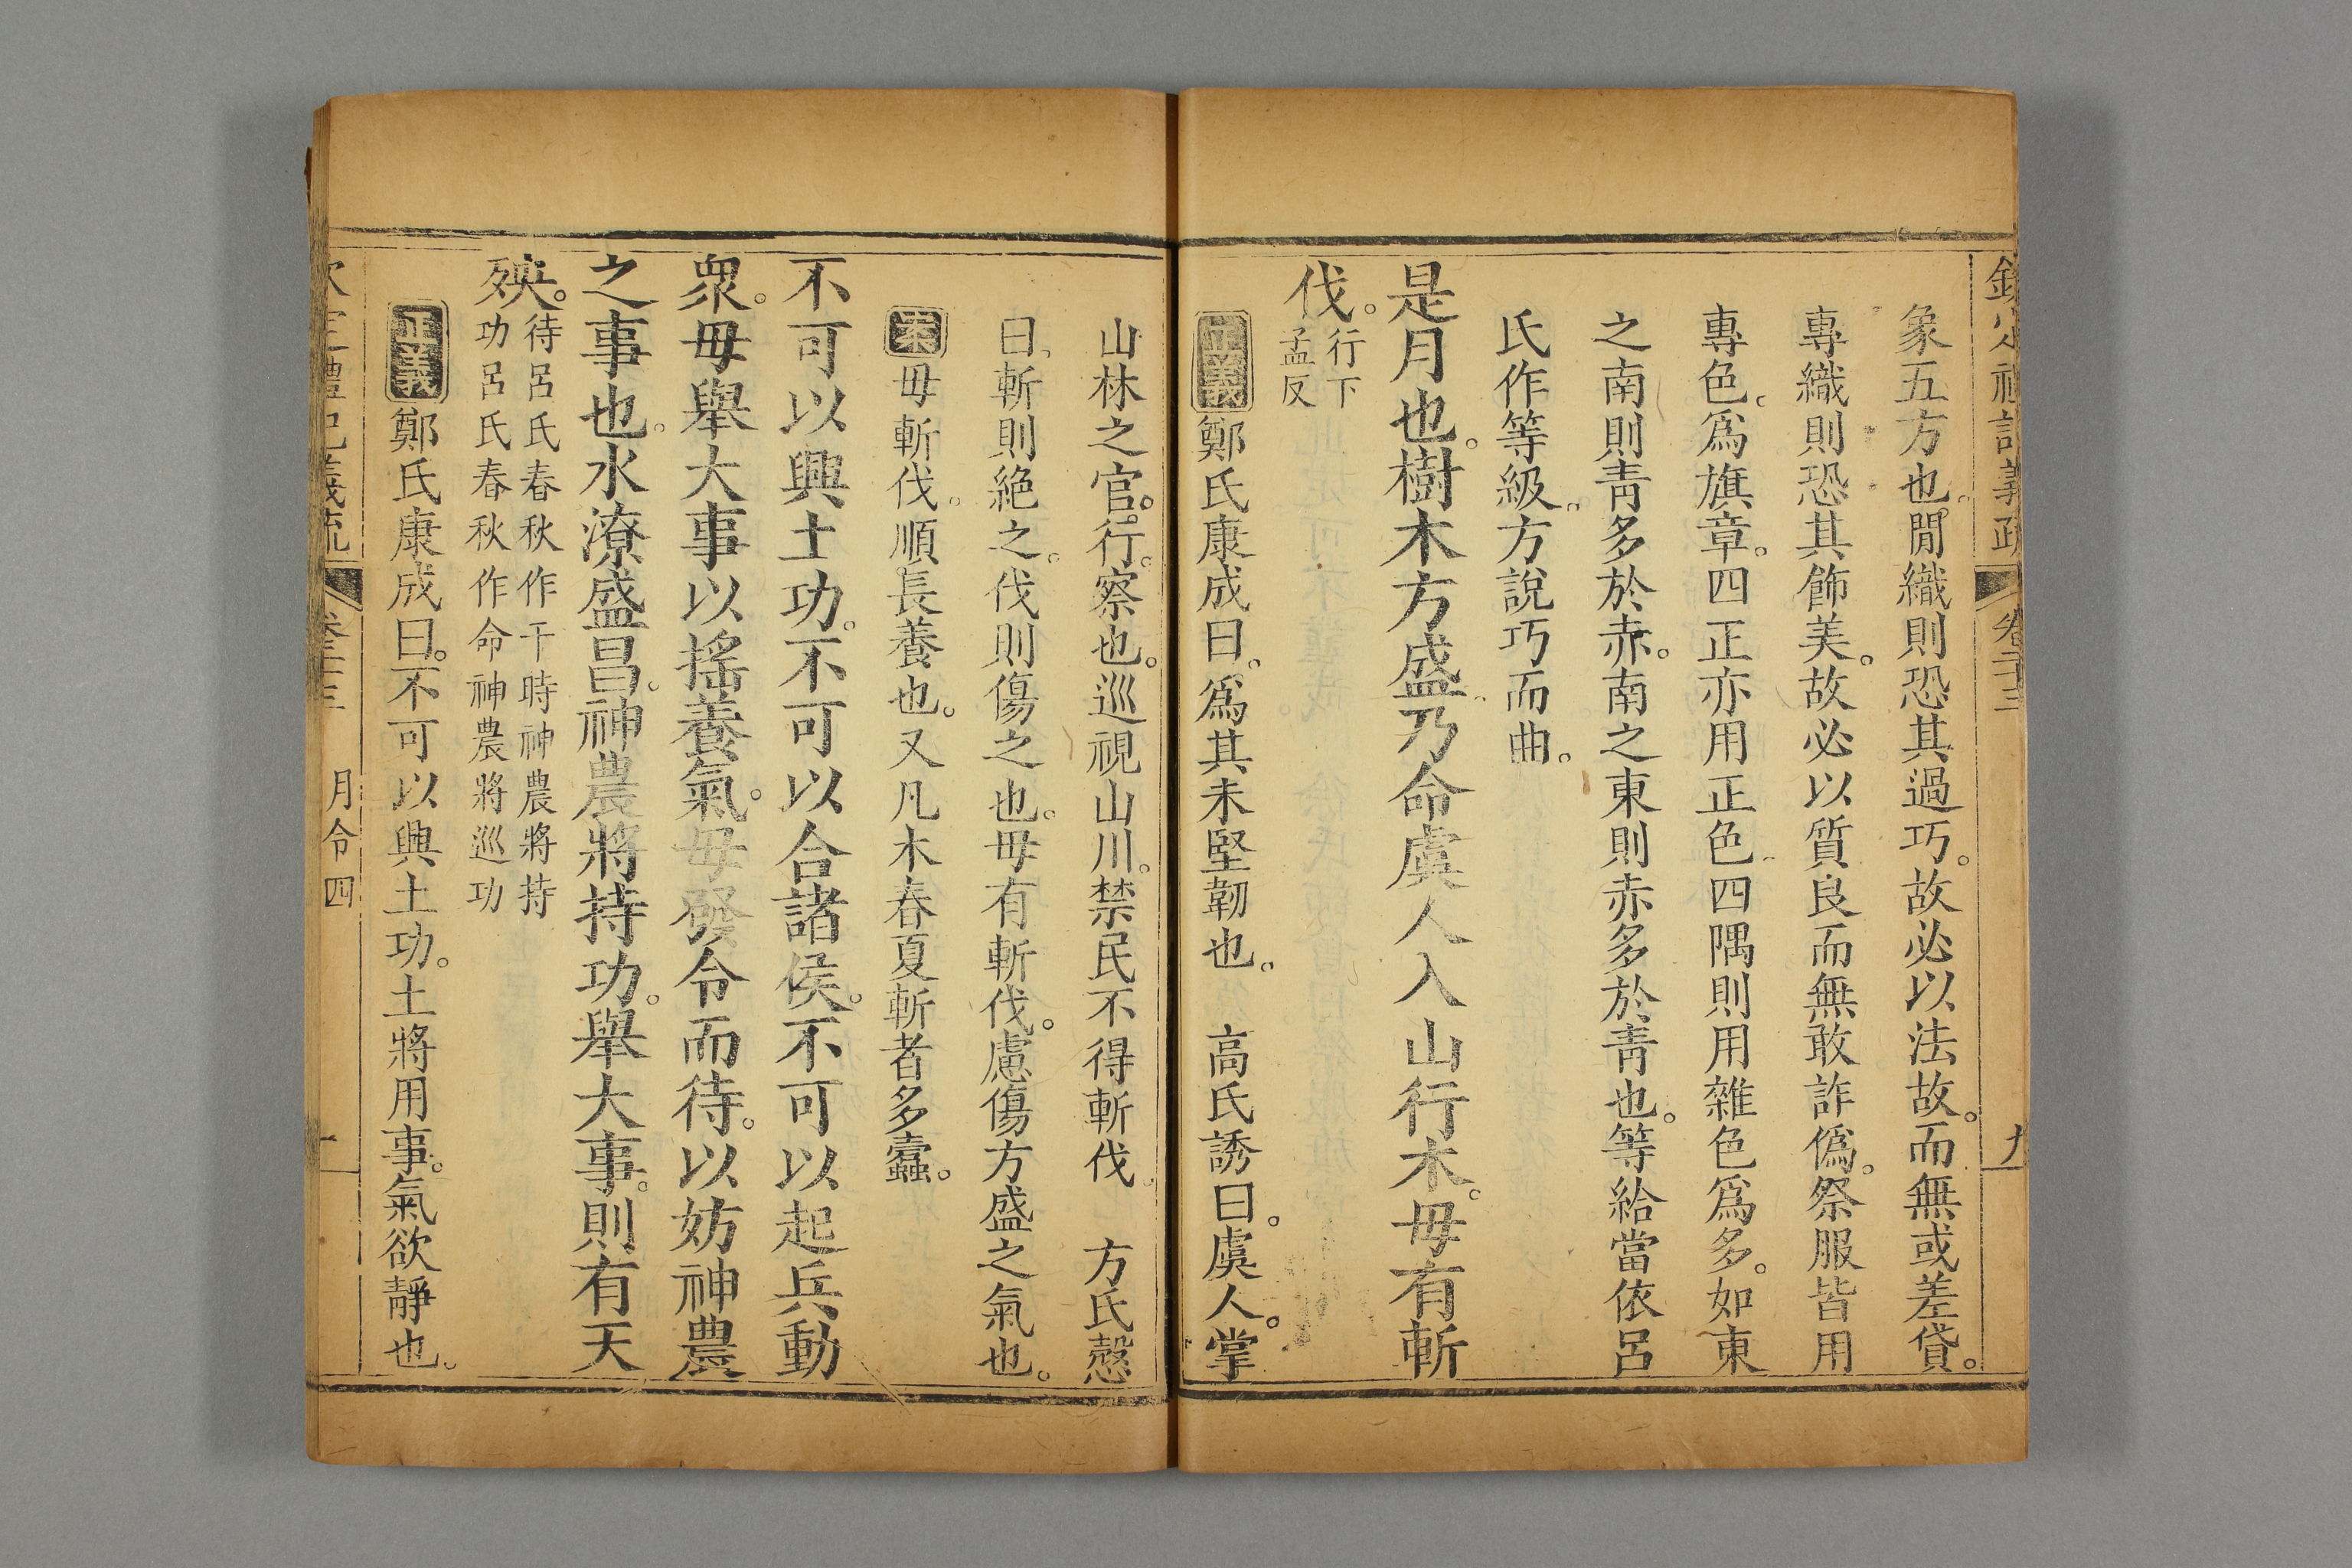 欽定禮記義疏 卷二十三 九
象五方也。閒織則恐其過巧。故必以法故。而無或差貸。
專織則恐其飾美。故必以質良而無敢詐僞。祭服皆用
專色。爲旗章。四正亦用正色。四隅則用雜色爲多。如東
之南則靑多於赤。南之東則赤多於靑也。等給當依呂
氏作等級。方說巧而曲。
是月也。樹木方盛。乃命虞人入山行木。毋有斬
伐。行下孟反
正義 鄭氏康成曰。爲其未堅韌也。 高氏誘曰。虞人。掌
山林之官。行。察也。巡視山川。禁民不得斬伐。 方氏慤
曰。斬則絶之。伐則傷之也。毋有斬伐。慮傷方盛之氣也。
案 毋斬伐。順長養也。又凡木春夏斬者多蠹。
不可以興土功。不可以合諸侯。不可以起兵動
衆。毋舉大事以搖養氣。毋發令而待。以妨神農
之事也。水潦盛昌。神農將持功。舉大事。則有天
殃。待呂氏春秋作干時神農將持功呂氏春秋作命神農將巡功
正義 鄭氏康成曰。不可以興土功。土將用事。氣欲靜也。
欽定禮記義疏 卷二十三 月令四